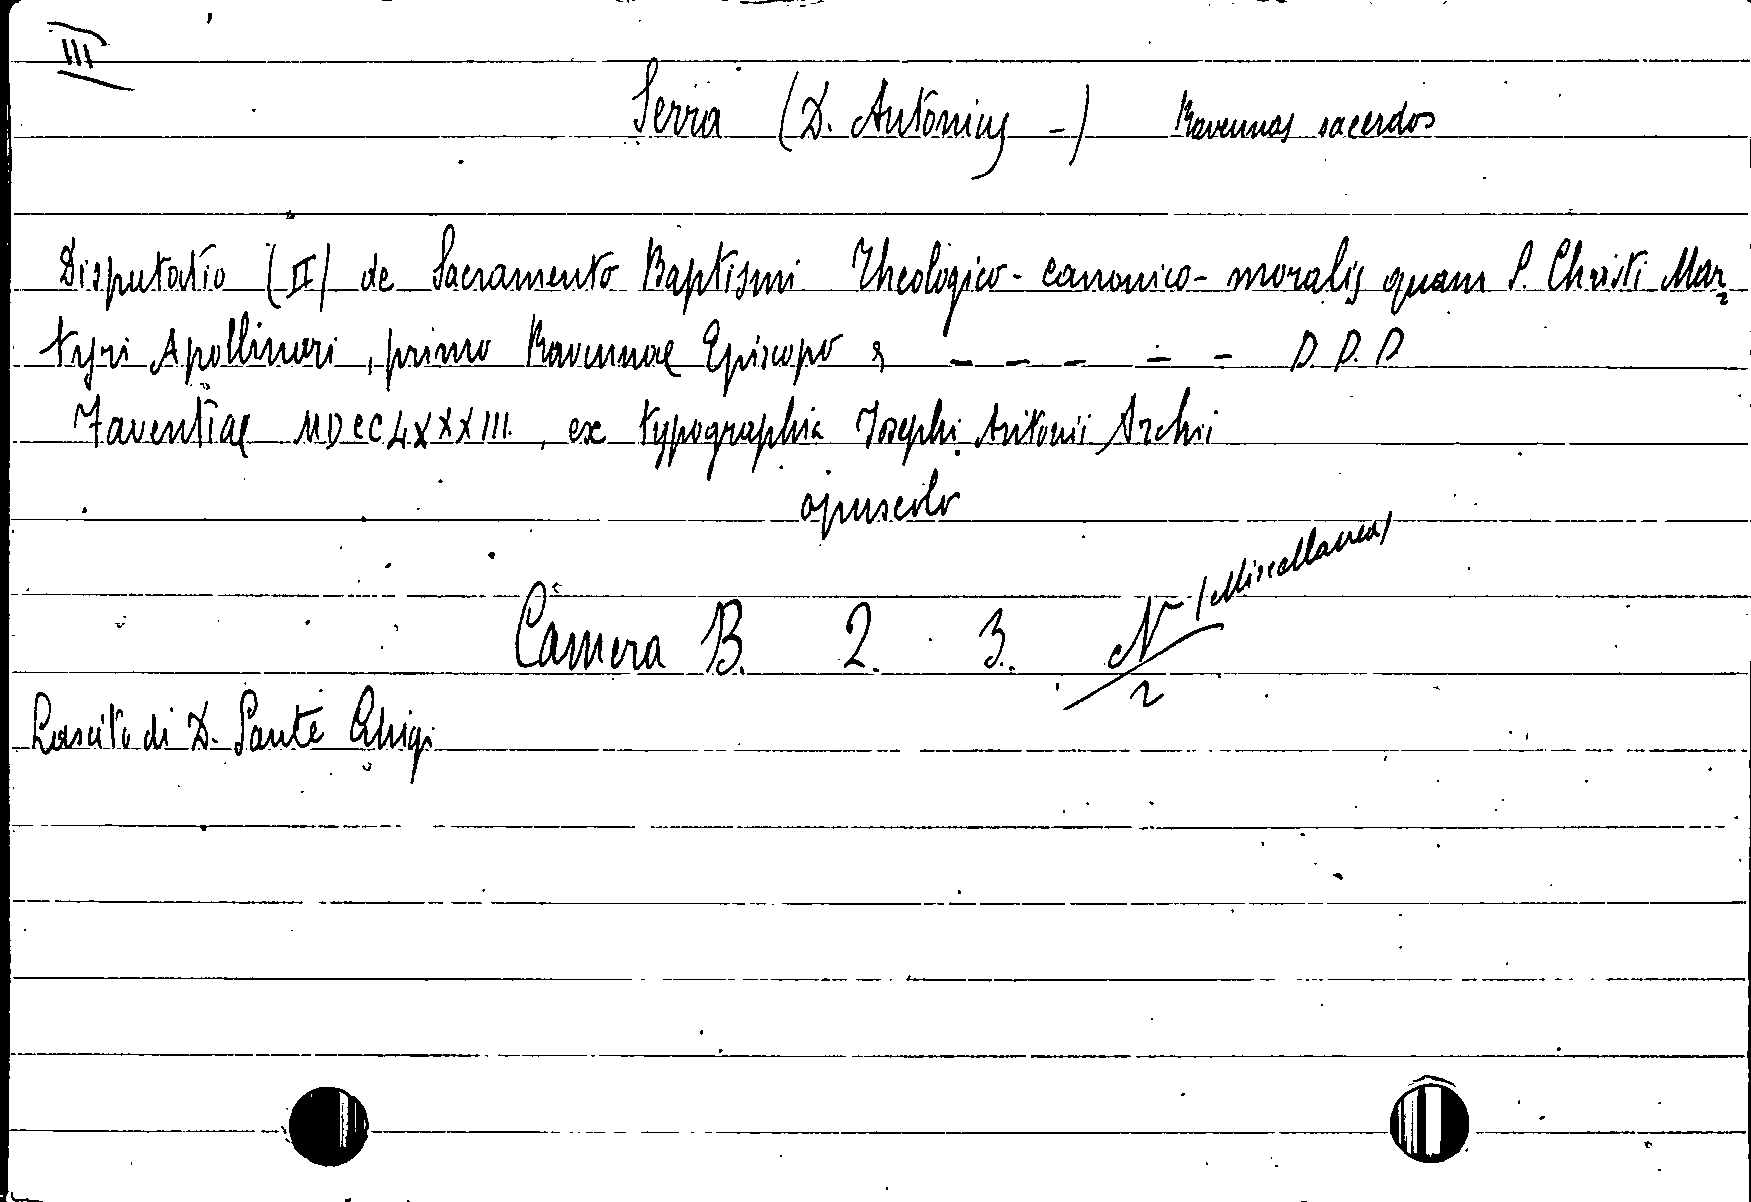 III
Serra (D. Antonius -) Ravennas sacerdos
Disputatio (II) de Sacramento Baptismi Theologico-canonico-moralis quam S. Christi Mar
tyri Apollinari, primo Ravennae Episcopo, - - - - - D. D. D
Faventiae MDCCLXXXIII, ex typographia Josephi Antonii Archii
opuscolo
Camera B. 2. 3. N (Miscellanea) / 2
Lascito di D. Sante Ghigi